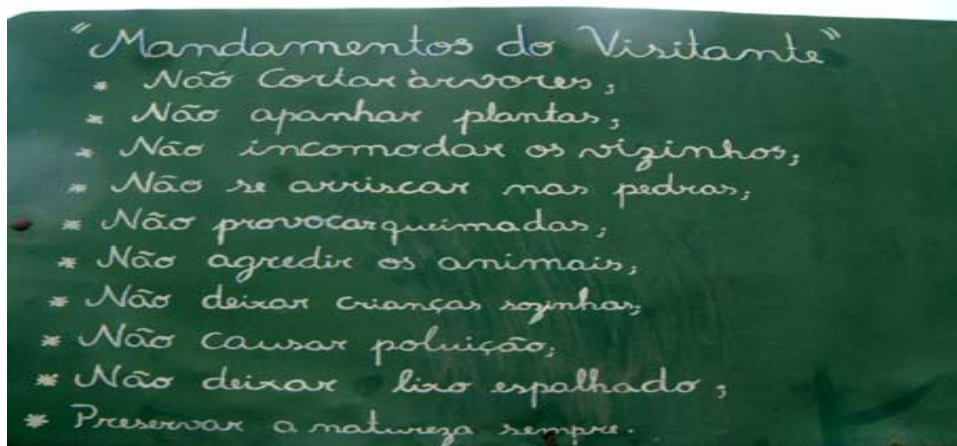 "Mandamentos do Visitante"
* Não Cortar àrvores;
* Não apanhar plantas;
* Não incomodar os vizinhos;
* Não se arriscar nas pedras;
* Não provocar queimadas;
* Não agredir os animais;
* Não deixar crianças sozinhas;
* Não causar poluição;
* Não deixar lixo espalhado;
* Preservar a natureza sempre.